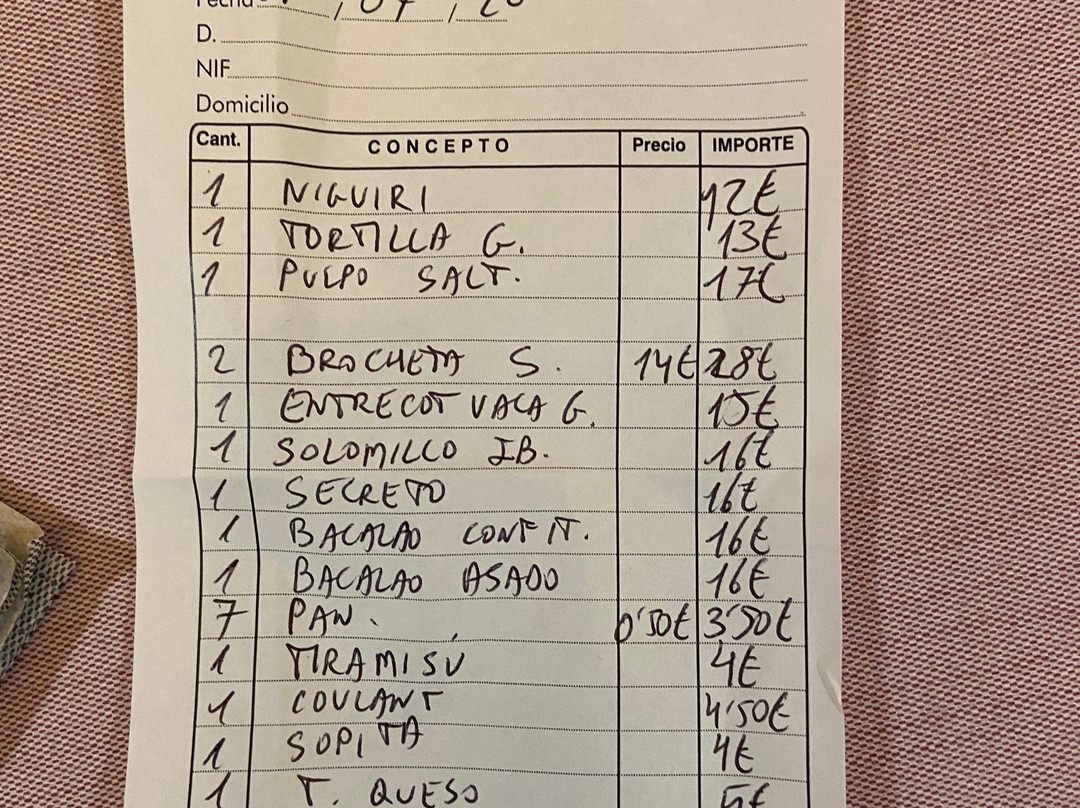 Fecha , 07 , 20
D.
NIF
Domicilio
Cant. CONCEPTO Precio IMPORTE
1 NIGUIRI 12€
1 TORTILLA G. 13€
1 PULPO SALT. 17€
2 BROCHETA S. 14€ 28€
1 ENTRECOT VACA G. 15€
1 SOLOMILLO IB. 16€
1 SECRETO 16€
1 BACALAO CONFIT. 16€
1 BACALAO ASADO 16€
7 PAN. 0'50€ 3'50€
1 TIRAMISU 4€
1 COULANT 4'50€
1 SOPITA 4€
1 T. QUESO 5€